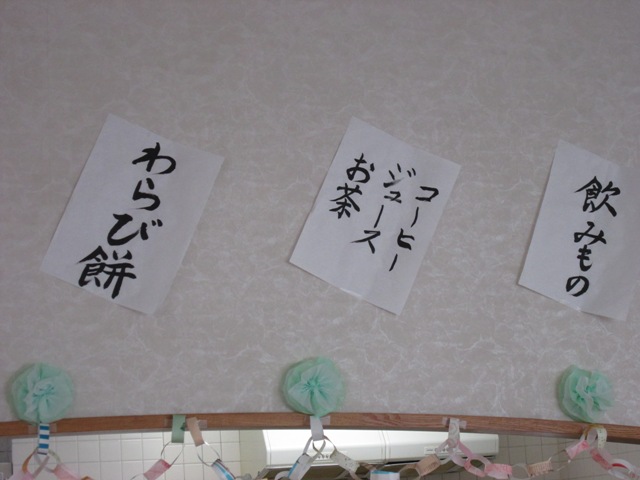 飲みもの
コーヒー
ジュース
お茶
わらび餅